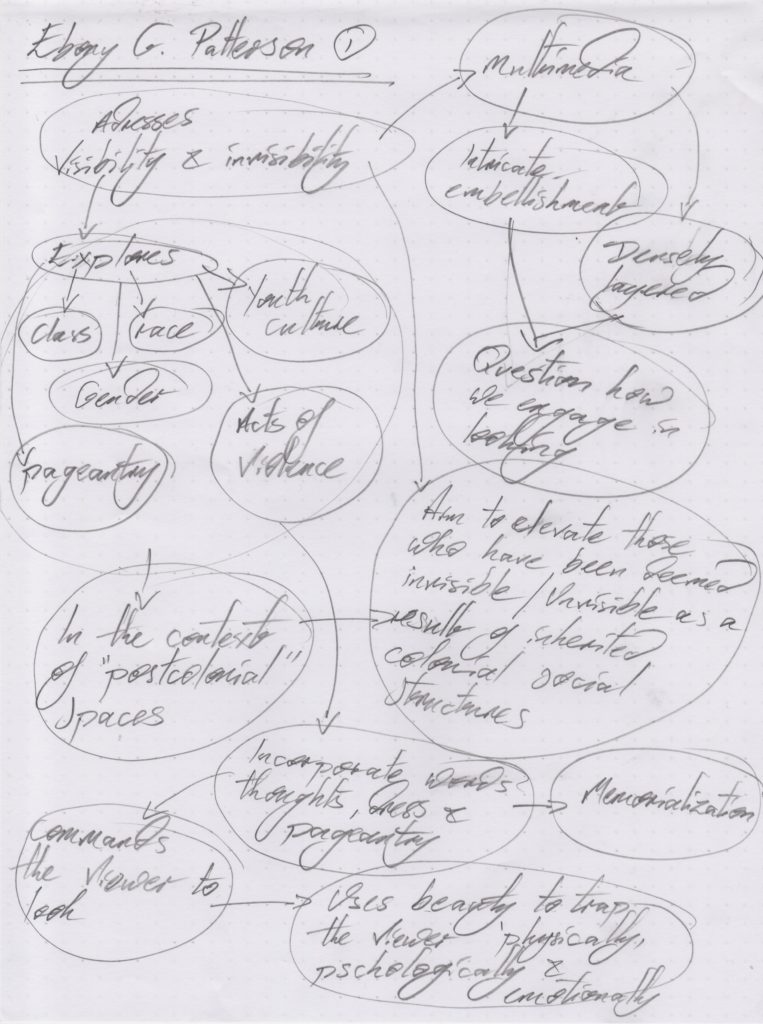 Ebony G. Patterson ①
Multimedia
Adresses
Visibility & invisibility
Intricate
embellishment
Densely
layered
Explores
Youth
culture
Class
race
Gender
Acts of
Violence
pageantry
Question how
we engage in
looking
Aim to elevate those
who have been deemed
invisible / Unvisible as a
result of inherited
colonial social
structures
In the context
of "postcolonial"
spaces
Incorporate words
thoughts, dress &
pageantry
Memorialization
Commands
the viewer to
look
Uses beauty to trap
the viewer physically,
pschologically &
emotionally